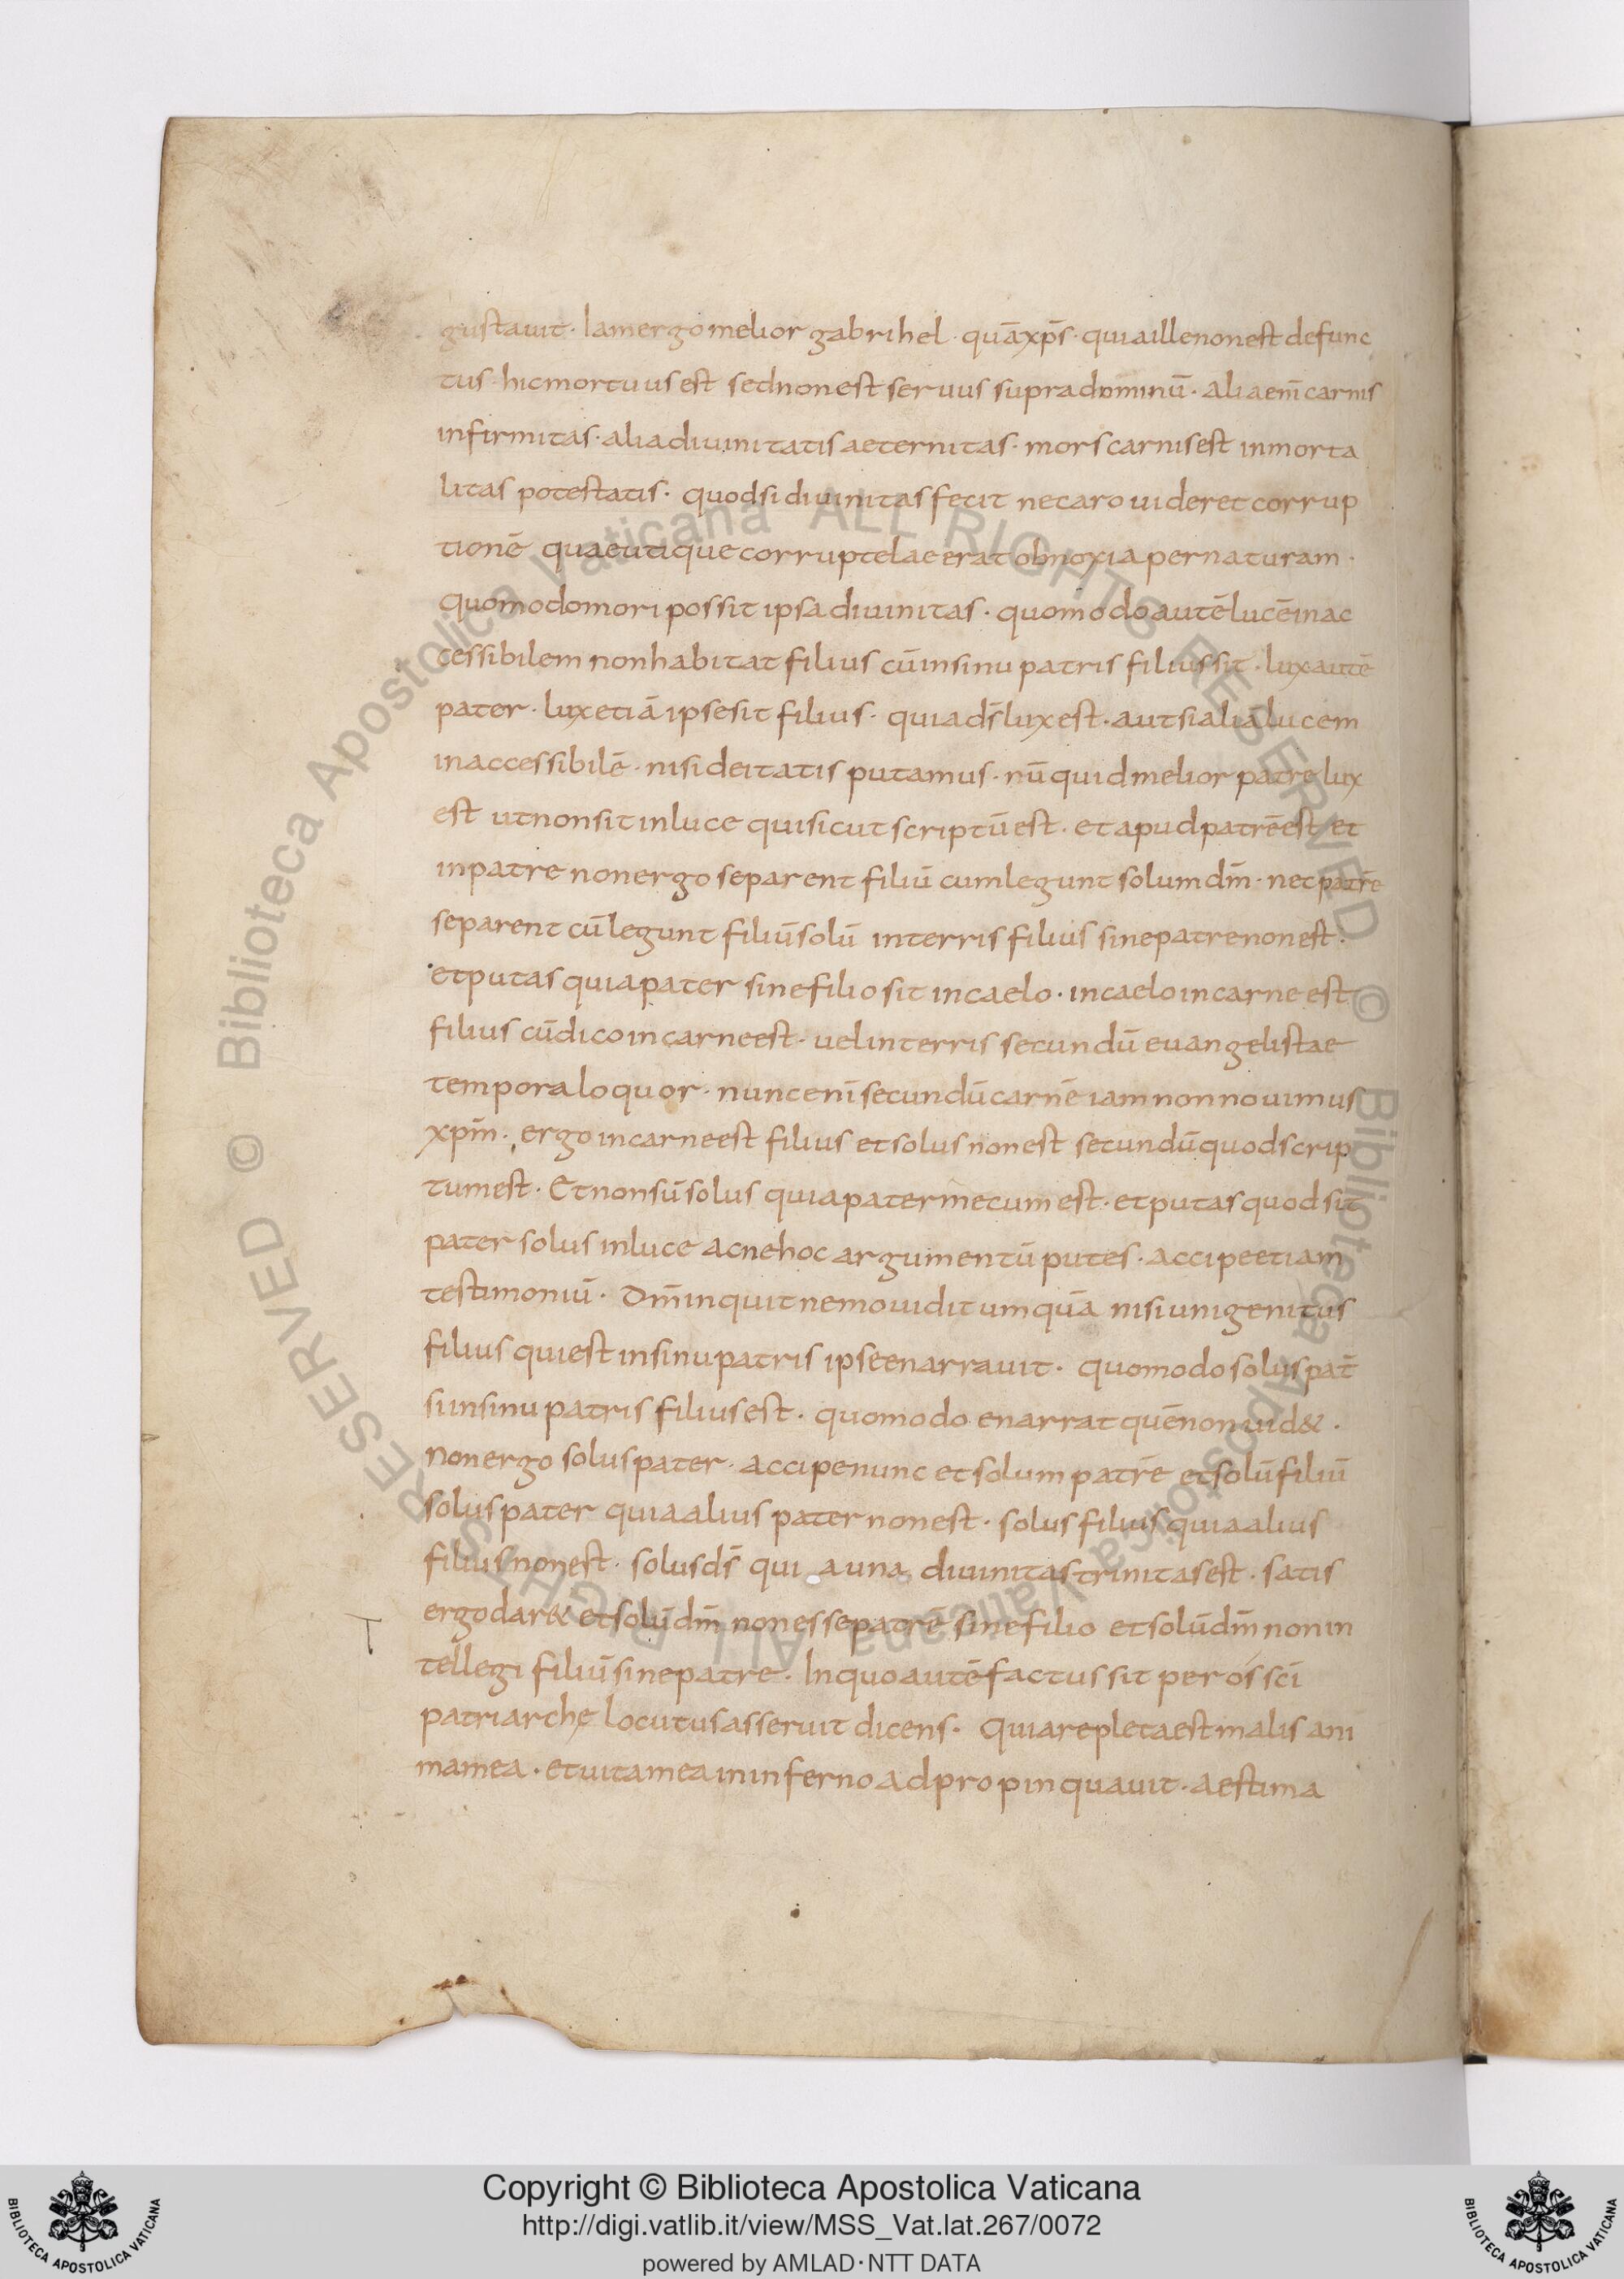 gustauit · Iam ergo melior gabrihel · quā xp̄s · quia ille non est defunc
tus · hic mortuus est sed non est seruus supra dominū · alia enī carnis
infirmitas · alia diuinitatis aeternitas · mors carnis est inmorta
litas potestatis · quod si diuinitas fecit ne caro uideret corrup
tionē quae utique corruptelae erat obnoxia per naturam ·
quomodo mori possit ipsa diuinitas · quomodo autē lucē inac
cessibilem non habitat filius cū in sinu patris filius sit · lux autē
pater · lux etiā ipse sit filius · quia d̄s lux est · aut si aliā lucem
inaccessibilē · nisi deitatis putamus · nūquid melior patre lux
est ut non sit in luce qui sicut scriptū est · et apud patrē est et
in patre non ergo separent filiū cum legunt solum dm̄ · nec patrē
separent cū legunt filiū solū in terris filius sine patre non est ·
et putas quia pater sine filio sit in caelo · in caelo in carne est
filius cū dico in carne est · uel in terris secundū euangelistae
tempora loquor · nunc enī secundū carnē iam non nouimus
xpm̄ · ergo in carne est filius et solus non est secundū quod scrip
tum est · Et non sū solus quia pater mecum est · et putas quod sit
pater solus in luce ac ne hoc argumentū putes · accipe etiam
testimoniū · Dm̄ inquit nemo uidit umquā nisi unigenitus
filius qui est in sinu patris ipse enarrauit · quomodo solus pat̄
si in sinu patris filius est · quomodo enarrat quē non uid& ·
Non ergo solus pater · accipe nunc et solum patrē et solū filiū
solus pater quia alius pater non est · solus filius quia alius
filius non est · solus d̄s qui a una diuinitas trinitas est · satis
ergo dar& et solū dm̄ non esse patrē sine filio et solū dm̄ non in
tellegi filiū sine patre · In quo autē factus sit per os sc̄i
patriarchę locutus asseruit dicens · Quia repleta est malis ani
ma mea · et uita mea in inferno adpropinquauit · aestima
T
© Biblioteca Apostolica Vaticana ALL RIGHTS RESERVED © Biblioteca Apostolica Vaticana ALL RIGHTS RESERVED
Copyright © Biblioteca Apostolica Vaticana
http://digi.vatlib.it/view/MSS_Vat.lat.267/0072
powered by AMLAD · NTT DATA
BIBLIOTECA APOSTOLICA VATICANA
BIBLIOTECA APOSTOLICA VATICANA